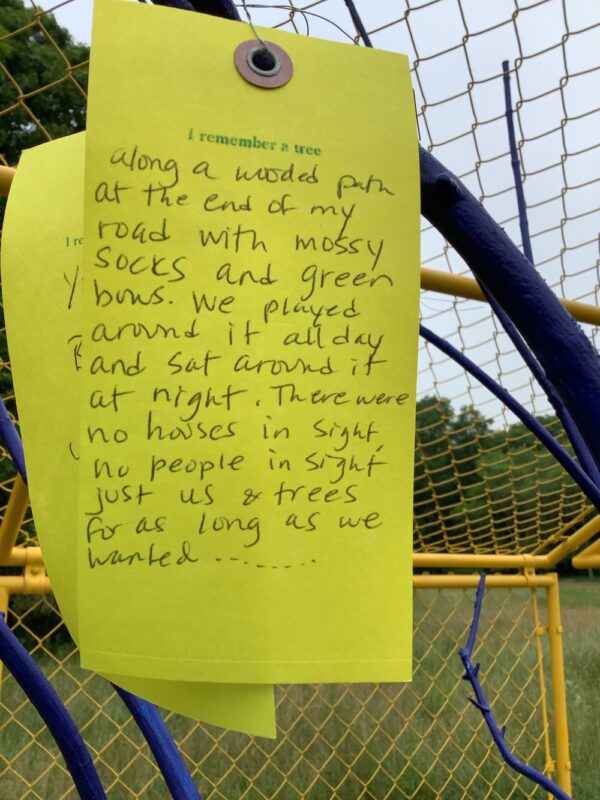 I remember a tree
along a wooded path
at the end of my
road with mossy
socks and green
bows. We played
around it all day
and sat around it
at night. There were
no houses in sight,
no people in sight
just us & trees
for as long as we
wanted ........
I re